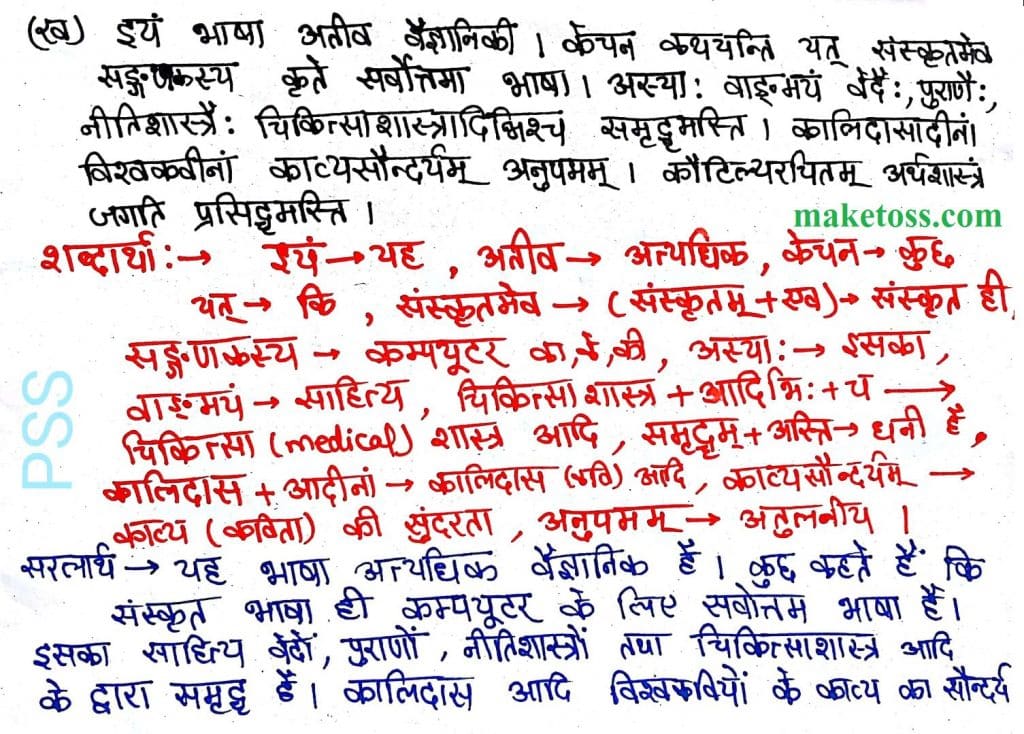 (ख) इयं भाषा अतीव वैज्ञानिकी । केचन कथयन्ति यत् संस्कृतमेव
सङ्गणकस्य कृते सर्वोत्तमा भाषा । अस्याः वाङ्मयं वेदैः, पुराणैः,
नीतिशास्त्रैः चिकित्साशास्त्रादिभिश्च समृद्धमस्ति । कालिदासादीनां
विश्वकवीनां काव्यसौन्दर्यम् अनुपमम् । कौटिल्यरचितम् अर्थशास्त्रं
जगति प्रसिद्धमस्ति ।
maketoss.com
शब्दार्थाः→ इयं→यह , अतीव→ अत्यधिक, केचन→ कुछ
यत्→ कि , संस्कृतमेव → (संस्कृतम् + एव)→ संस्कृत ही,
सङ्गणकस्य → कम्पयूटर का,के,की, अस्याः→ इसका,
वाङ्मयं→ साहित्य, चिकित्साशास्त्र + आदिभिः + च →
चिकित्सा (medical) शास्त्र आदि, समृद्धम् + अस्ति→ धनी है,
कालिदास + आदीनां → कालिदास (कवि) आदि, काव्यसौन्दर्यम् →
काव्य (कविता) की सुंदरता , अनुपमम् → अतुलनीय ।
PSS
सरलार्थ → यह भाषा अत्यधिक वैज्ञानिक है । कुछ कहते हैं कि
संस्कृत भाषा ही कम्पयूटर के लिए सर्वोत्तम भाषा है।
इसका साहित्य वेदों, पुराणों , नीतिशास्त्रों तथा चिकित्साशास्त्र आदि
के द्वारा समृद्ध है । कालिदास आदि विश्वकवियों के काव्य का सौन्दर्य